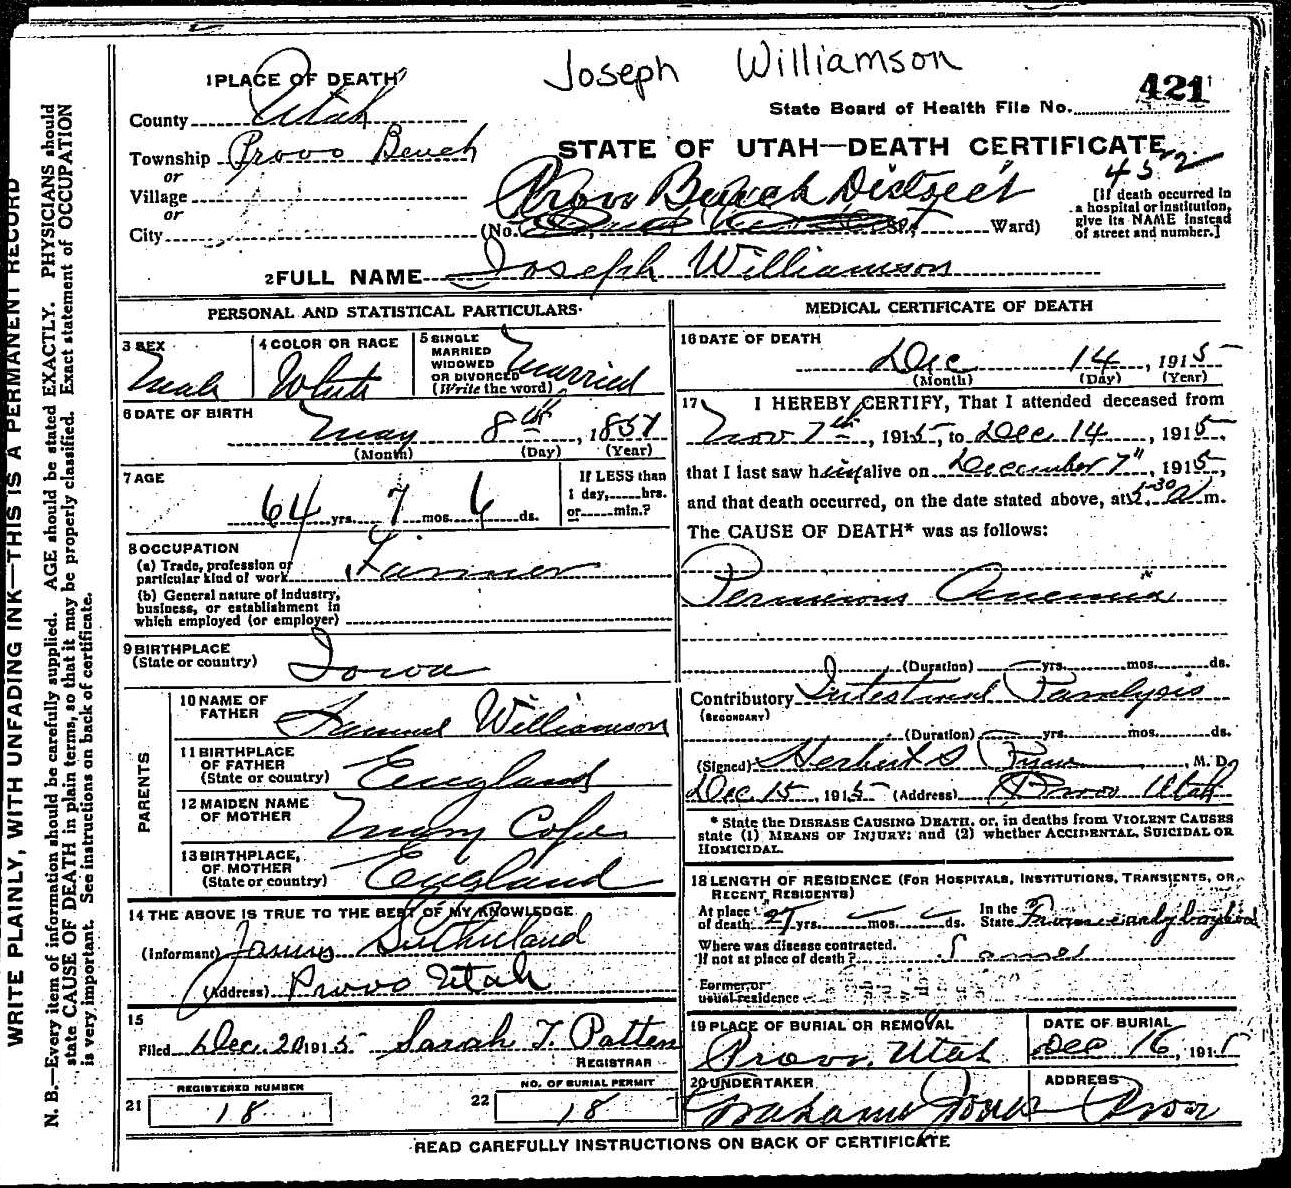 Joseph Williamson
1 PLACE OF DEATH
421
State Board of Health File No.
County Utah
Township Provo Bench
STATE OF UTAH—DEATH CERTIFICATE
452
or
Village
Provo Bench District
[If death occurred in
a hospital or institution,
give its NAME instead
of street and number.]
or
City (No. St., Ward)
2 FULL NAME Joseph Williamson
PERSONAL AND STATISTICAL PARTICULARS
3 SEX
Male
4 COLOR OR RACE
White
5 SINGLE
MARRIED
WIDOWED
OR DIVORCED
(Write the word)
Married
6 DATE OF BIRTH
May 8th, 1851
(Month) (Day) (Year)
7 AGE
64 yrs. 7 mos. 6 ds.
If LESS than
1 day, hrs.
or min.?
8 OCCUPATION
(a) Trade, profession or
particular kind of work Farmer
(b) General nature of industry,
business, or establishment in
which employed (or employer)
9 BIRTHPLACE
(State or country) Iowa
PARENTS
10 NAME OF
FATHER Samuel Williamson
11 BIRTHPLACE
OF FATHER
(State or country) England
12 MAIDEN NAME
OF MOTHER Mary Cope
13 BIRTHPLACE,
OF MOTHER
(State or country) England
14 THE ABOVE IS TRUE TO THE BEST OF MY KNOWLEDGE
(Informant) James Sutherland
(Address) Provo Utah
15
Filed Dec. 20 1915 Sarah T. Patten
REGISTRAR
REGISTERED NUMBER
21 18
NO. OF BURIAL PERMIT
22 18
MEDICAL CERTIFICATE OF DEATH
16 DATE OF DEATH
Dec 14, 1915
(Month) (Day) (Year)
17 I HEREBY CERTIFY, That I attended deceased from
Nov 7th, 1915, to Dec 14, 1915,
that I last saw him alive on December 7", 1915,
and that death occurred, on the date stated above, at 30 A m.
The CAUSE OF DEATH* was as follows:
Pernicious Anemia
(Duration) yrs. mos. ds.
Contributory Intestinal Paralysis
(SECONDARY)
(Duration) yrs. mos. ds.
(Signed) Herbert S , M. D.
Dec 15, 1915 (Address) Provo Utah
* State the DISEASE CAUSING DEATH, or, in deaths from VIOLENT CAUSES
state (1) MEANS OF INJURY: and (2) whether ACCIDENTAL, SUICIDAL OR
HOMICIDAL.
18 LENGTH OF RESIDENCE (FOR HOSPITALS, INSTITUTIONS, TRANSIENTS, OR
RECENT RESIDENTS)
At place
of death yrs. mos. ds. In the
State From early boyhood
Where was disease contracted.
If not at place of death? Same
Former or
usual residence
19 PLACE OF BURIAL OR REMOVAL
Provo, Utah
DATE OF BURIAL
Dec 16, 1915
20 UNDERTAKER
Graham Jones
ADDRESS
Provo
READ CAREFULLY INSTRUCTIONS ON BACK OF CERTIFICATE
WRITE PLAINLY, WITH UNFADING INK—THIS IS A PERMANENT RECORD
N. B.—Every item of information should be carefully supplied. AGE should be stated EXACTLY. PHYSICIANS should
state CAUSE OF DEATH in plain terms, so that it may be properly classified. Exact statement of OCCUPATION
is very important. See instructions on back of certificate.